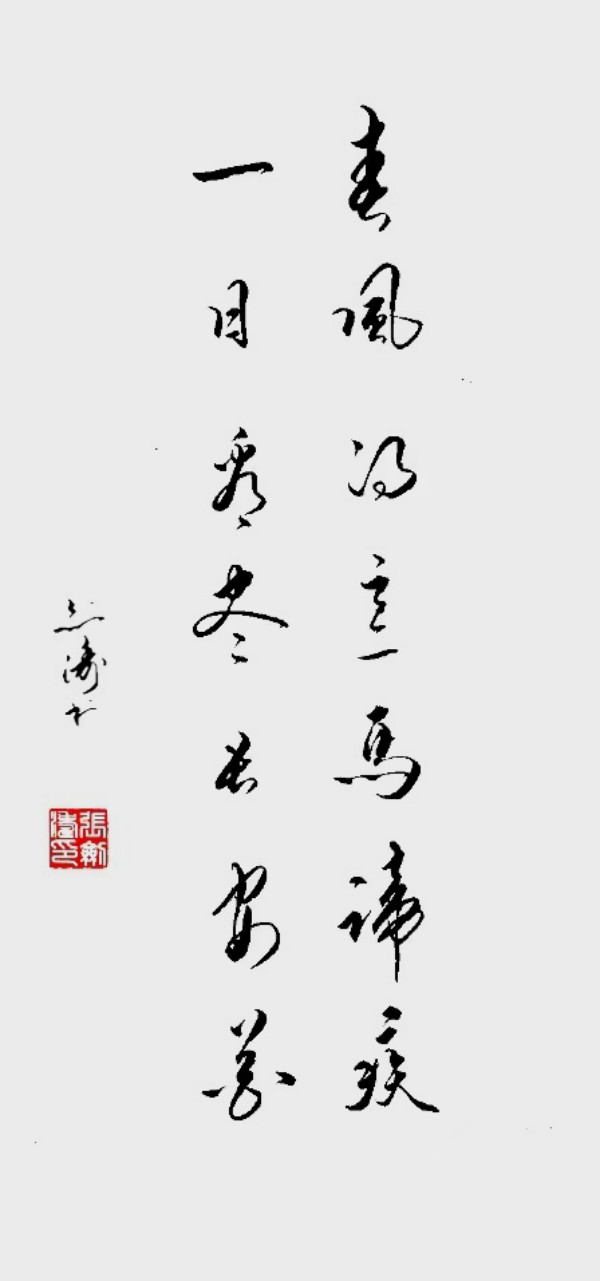 春風得意馬蹄疾
一日看尽長安花
濤书
張劍濤印